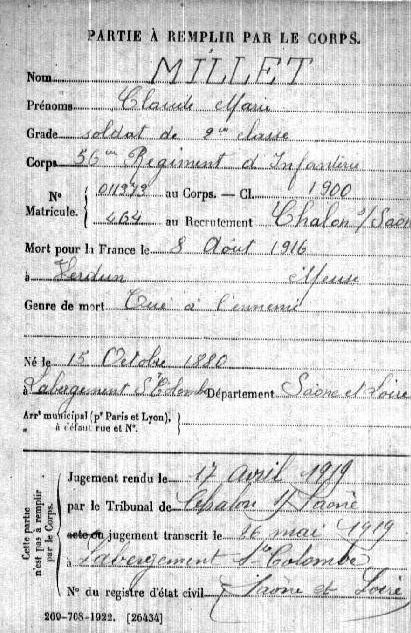 PARTIE À REMPLIR PAR LE CORPS.
Nom MILLET
Prénoms Claude Marie
Grade soldat de 2me classe
Corps 56me Régiment d Infanterie
N° Matricule. 011273 au Corps. — Cl. 1900
464 au Recrutement Chalon s/ Saône
Mort pour la France le 8 Août 1916
à Verdun Meuse
Genre de mort Tué à l'ennemi
Né le 15 Octobre 1880
à Labergement Ste Colombe Département Saône et Loire
Arrt municipal (pr Paris et Lyon),
à défaut rue et N°.
Cette partie n'est pas à remplir par le Corps.
Jugement rendu le 17 avril 1919
par le Tribunal de Chalon s/ Saône
acte ou jugement transcrit le 26 mai 1919
à Labergement Ste Colombe
N° du registre d'état civil Saône et Loire
209-708-1922. [26434]